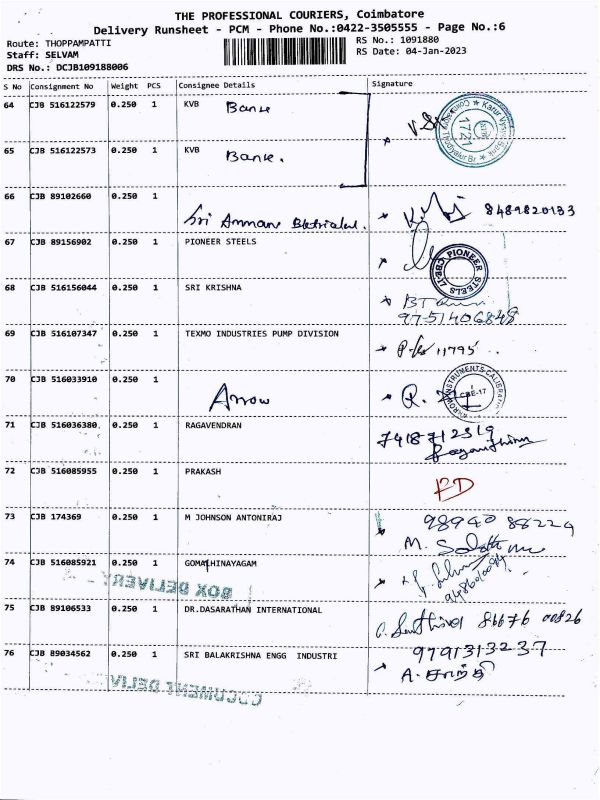 THE PROFESSIONAL COURIERS, Coimbatore
Delivery Runsheet - PCM - Phone No.:0422-3505555 - Page No.:6
Route: THOPPAMPATTI
RS No.: 1091880
Staff: SELVAM
RS Date: 04-Jan-2023
DRS No.: DCJB109188006
S No Consignment No Weight PCS Consignee Details Signature
64 CJB 516122579 0.250 1 KVB Bank
65 CJB 516122573 0.250 1 KVB Bank.
1721
66 CJB 89102660 0.250 1
Sri Amman
8489820133
67 CJB 89156902 0.250 1 PIONEER STEELS
PIONEER STEELS CBE-17
68 CJB 516156044 0.250 1 SRI KRISHNA
9751406848
69 CJB 516107347 0.250 1 TEXMO INDUSTRIES PUMP DIVISION
11795
70 CJB 516033910 0.250 1 Arrow
CBE-17
71 CJB 516036380 0.250 1 RAGAVENDRAN
7418712319
72 CJB 516085955 0.250 1 PRAKASH
RD
73 CJB 174369 0.250 1 M JOHNSON ANTONIRAJ
98940 88224
74 CJB 516085921 0.250 1 GOMATHINAYAGAM
BOX DELIVERY
75 CJB 89106533 0.250 1 DR.DASARATHAN INTERNATIONAL
86676 00826
76 CJB 89034562 0.250 1 SRI BALAKRISHNA ENGG INDUSTRI
9791313237
A. சாந்தி
DOCUMENT DELIV